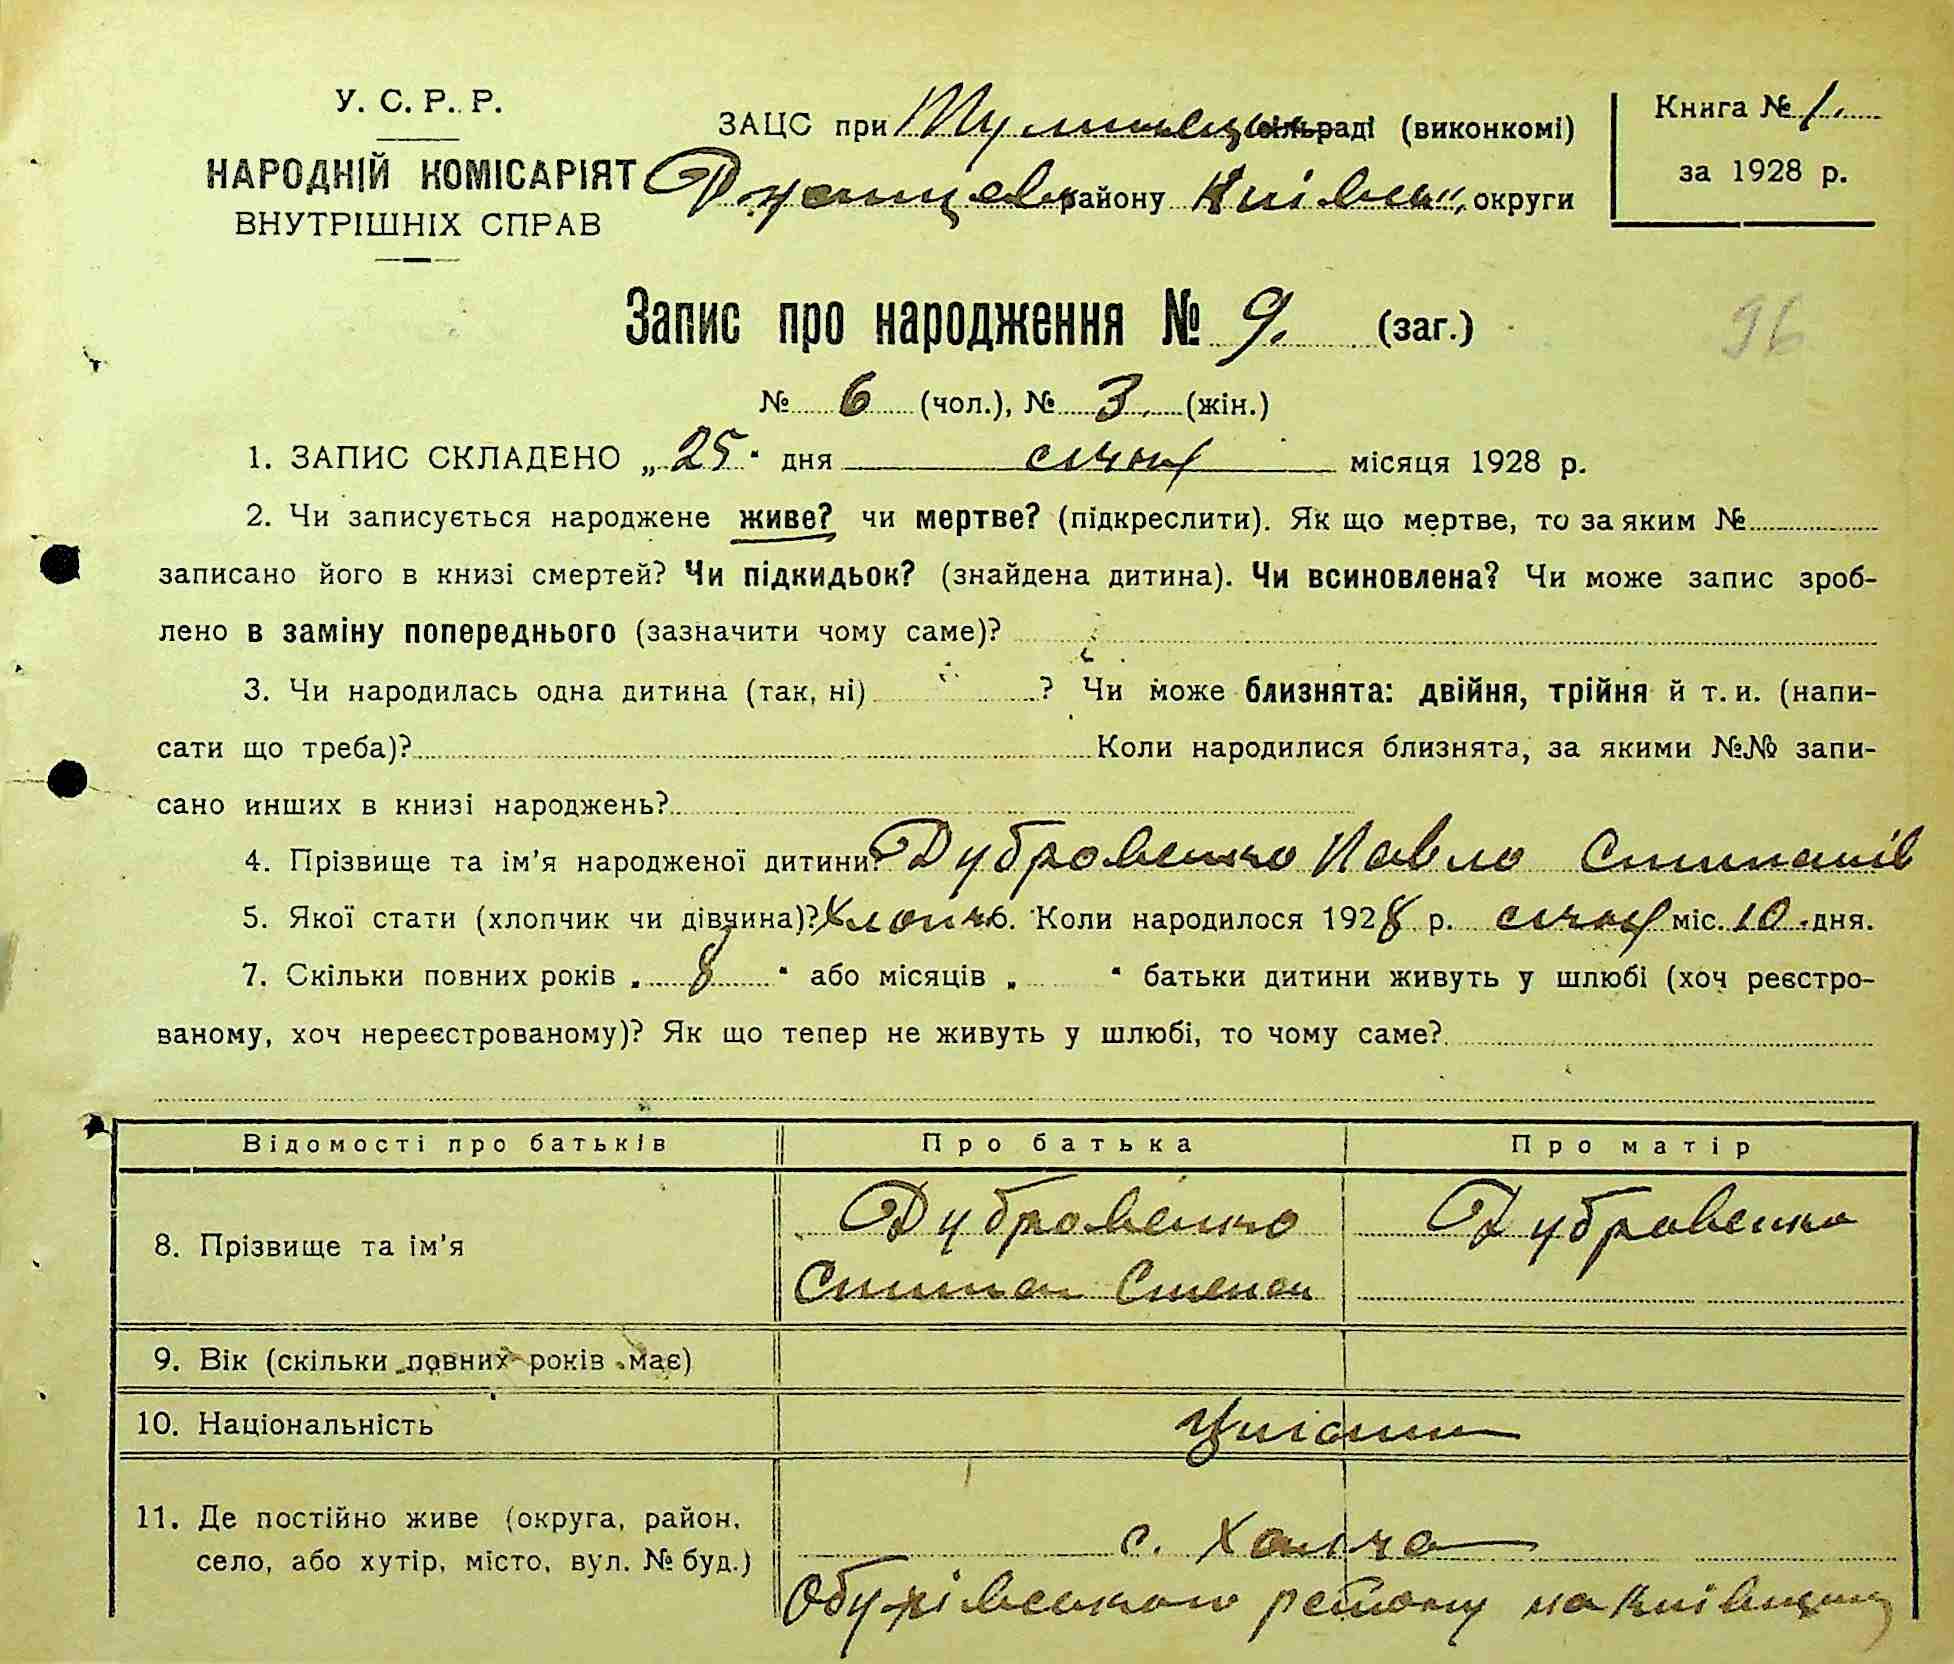 У. С. Р. Р.
НАРОДНІЙ КОМІСАРІЯТ
ВНУТРІШНІХ СПРАВ
ЗАЦС при сільраді (виконкомі)
району Київськ. округи
Книга № 1.
за 1928 р.
Запис про народження № 9. (заг.)
96
№ 6 (чол.), № 3. (жін.)
1. ЗАПИС СКЛАДЕНО „25" дня січня місяця 1928 р.
2. Чи записується народжене живе? чи мертве? (підкреслити). Як що мертве, то за яким №
записано його в книзі смертей? Чи підкидьок? (знайдена дитина). Чи всиновлена? Чи може запис зроб-
лено в заміну попереднього (зазначити чому саме)?
3. Чи народилась одна дитина (так, ні) ? Чи може близнята: двійня, трійня й т. и. (напи-
сати що треба)? Коли народилися близнята, за якими №№ запи-
сано инших в книзі народжень?
4. Прізвище та ім'я народженої дитини? Дубровенко Павло Степанів
5. Якої стати (хлопчик чи дівчина)? Хлопч. 6. Коли народилося 1928 р. січня міс. 10 дня.
7. Скільки повних років „ 8 " або місяців „ " батьки дитини живуть у шлюбі (хоч реєстро-
ваному, хоч нереєстрованому)? Як що тепер не живуть у шлюбі, то чому саме?
Відомості про батьків Про батька Про матір
8. Прізвище та ім'я Дубровенко Дубровенко
Степан
9. Вік (скільки повних років має)
10. Національність
11. Де постійно живе (округа, район,
село, або хутір, місто, вул. № буд.)
с. Халча
Обухівського району на Київщині